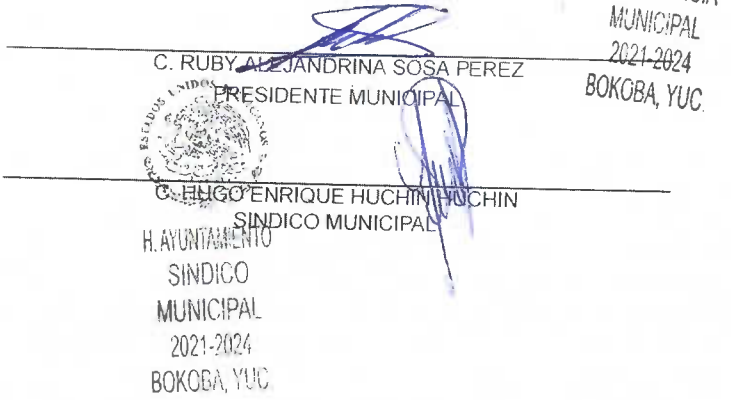 MUNICIPAL
2021-2024
BOKOBA, YUC.
C. RUBY ALEJANDRINA SOSA PEREZ
PRESIDENTE MUNICIPAL
ESTADOS UNIDOS
C. HUGO ENRIQUE HUCHIN HUCHIN
SINDICO MUNICIPAL
H. AYUNTAMIENTO
SINDICO
MUNICIPAL
2021-2024
BOKOBA, YUC